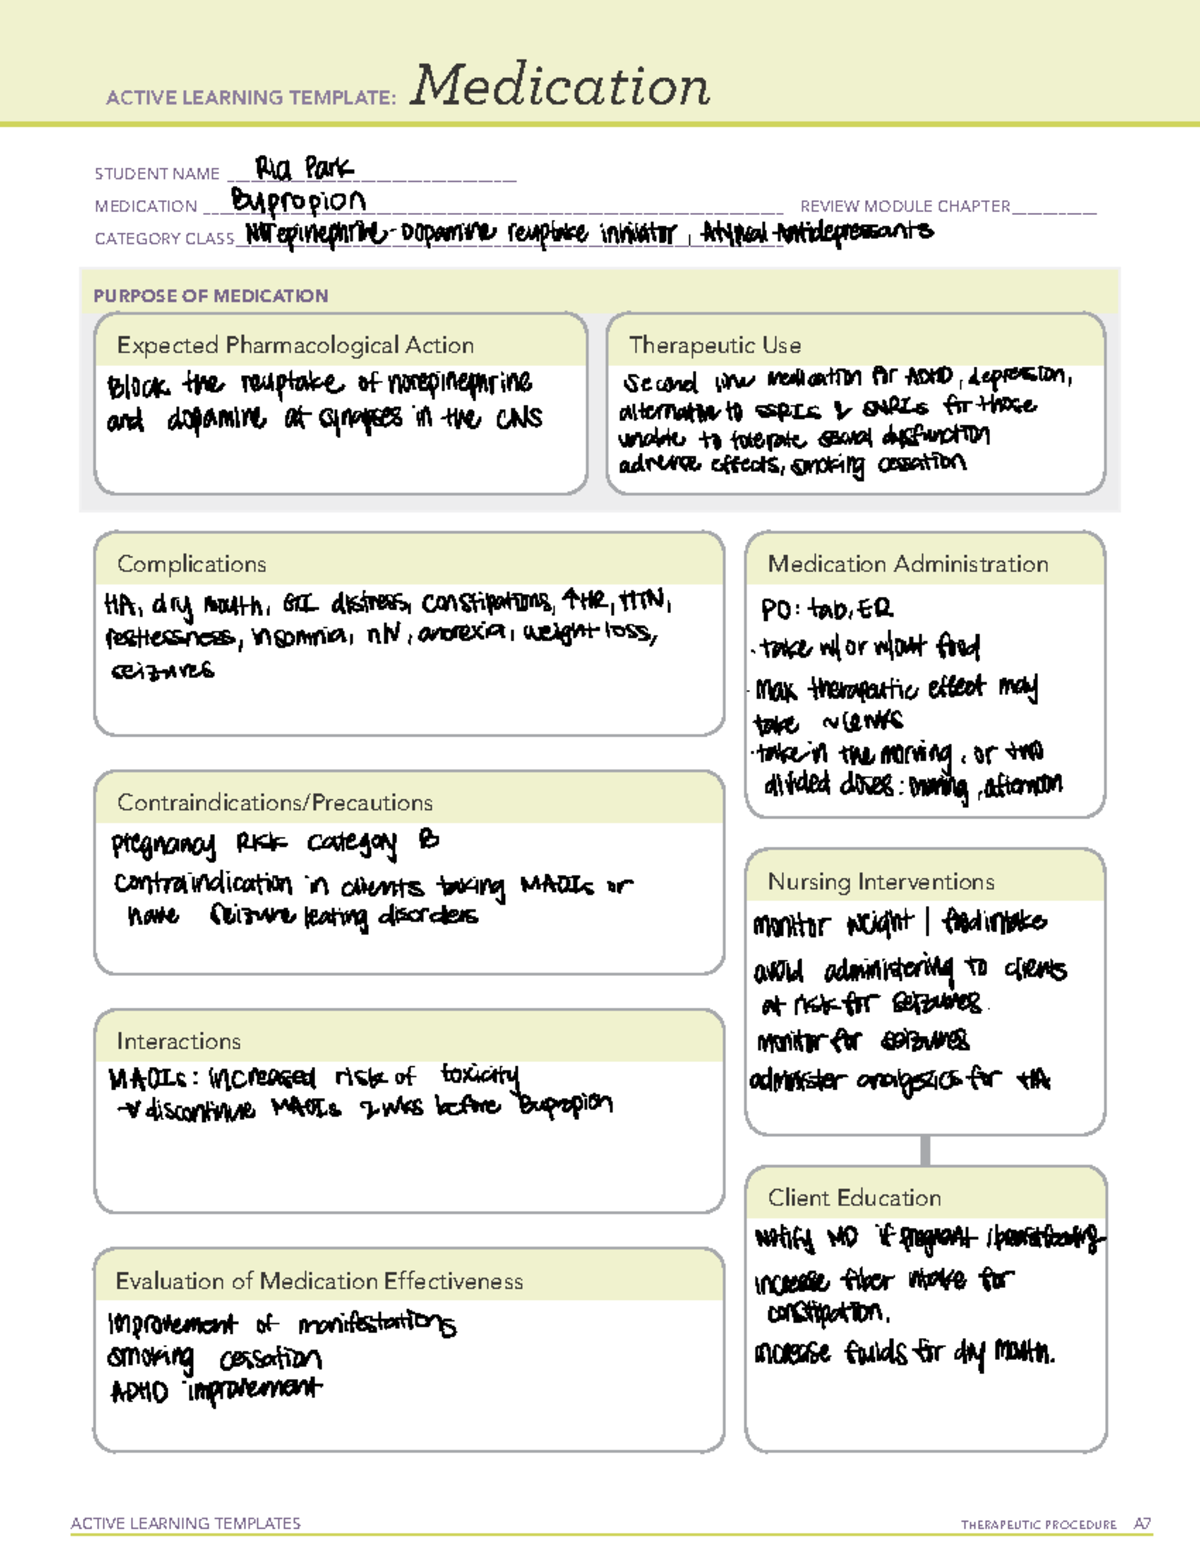 ACTIVE LEARNING TEMPLATE: Medication
STUDENT NAME Ria Park
MEDICATION Bupropion REVIEW MODULE CHAPTER
CATEGORY CLASS Norepinephrine-Dopamine reuptake inhibitor, Atypical Antidepressants
PURPOSE OF MEDICATION
Expected Pharmacological Action
Block the reuptake of norepinephrine
and dopamine at synapses in the CNS
Therapeutic Use
Second line medication for ADHD, depression,
alternative to SSRIs & SNRIs for those
unable to tolerate sexual dysfunction
adverse effects, smoking cessation
Complications
HA, dry mouth, GI distress, constipations, ↑HR, HTN,
restlessness, insomnia, n/v, anorexia, weight loss,
seizures
Contraindications/Precautions
pregnancy Risk Category B
contraindication in clients taking MAOIs or
have seizure / eating disorders
Interactions
MAOIs: increased risk of toxicity
→ discontinue MAOIs 2 wks before Bupropion
Evaluation of Medication Effectiveness
Improvement of manifestations
smoking cessation
ADHD improvement
Medication Administration
PO: tab, ER
· take w/ or w/out food
· Max therapeutic effect may
take wks
· take in the morning, or two
divided doses: morning, afternoon
Nursing Interventions
monitor weight | food intake
avoid administering to clients
at risk for seizures.
monitor for seizures
administer analgesics for HA
Client Education
Notify MD if pregnant / breastfeeding
increase fiber intake for
constipation.
increase fluids for dry mouth.
ACTIVE LEARNING TEMPLATES THERAPEUTIC PROCEDURE A7